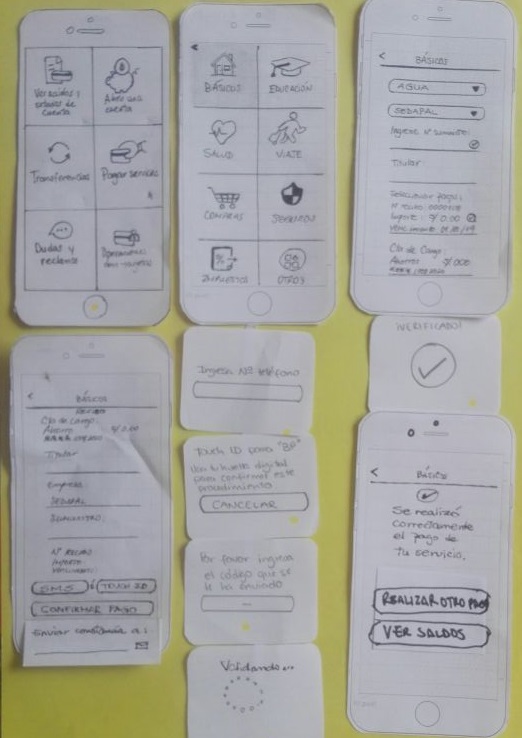 estados de
cuenta
Abre una
cuenta
Transferencias
Pagar servicios
Dudas y
reclamos
<
BÁSICOS
EDUCACIÓN
SALUD
VIAJE
COMPRAS
SEGUROS
IMPUESTOS
OTROS
<
BÁSICOS
AGUA
SEDAPAL
Titular:
Cta de Cargo:
Ahorros
¡VERIFICADO!
<
BÁSICOS
Cta de Cargo:
Ahorro
Titular
Empresa
SEDAPAL
Nº RECIBO
SMS ó TOUCH ID
CONFIRMAR PAGO
Enviar constancia a:
Ingresa Nº teléfono
Touch ID para "BP"
Usa tu huella digital
para confirmar este
procedimiento.
CANCELAR
Por favor ingresa
el código que se
le ha enviado
Validando...
<
BÁSICO
Se realizó
correctamente
el pago de
tu servicio.
REALIZAR OTRO PAGO
VER SALDOS